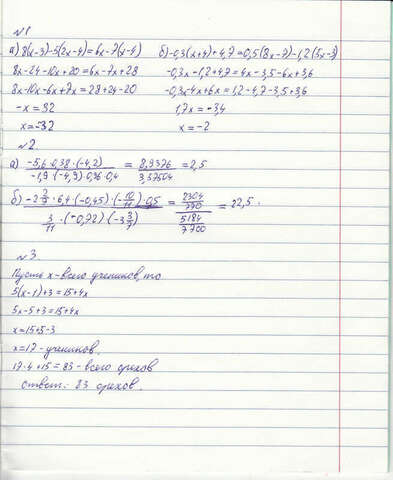 №1
а) 8(x-3)-5(2x-4)=6x-7(x-4) б) -0,3(x+4)+4,7=0,5(8x-7)-1,2(5x-3)
8x-24-10x+20=6x-7x+28 -0,3x-1,2+4,7=4x-3,5-6x+3,6
8x-10x-6x+7x=28+24-20 -0,3x-4x+6x=1,2-4,7-3,5+3,6
-x=32 1,7x=-3,4
x=-32 x=-2
№2
а) -5,6·0,38·(-4,2) / -1,9·(-4,9)·0,36·0,4 = 8,9376 / 3,37504 = 2,5
б) -2 2/9·6,4·(-0,45)·(-10/11)·0,5 / 3/11·(-0,72)·(-3 3/7) = 2304/770 / 5184/7700 = 22,5
№3
Пусть x-всего учеников, то
5(x-1)+3=15+4x
5x-5+3=15+4x
x=15+5-3
x=17-учеников.
17·4+15=83-всего орехов
Ответ: 83 орехов.